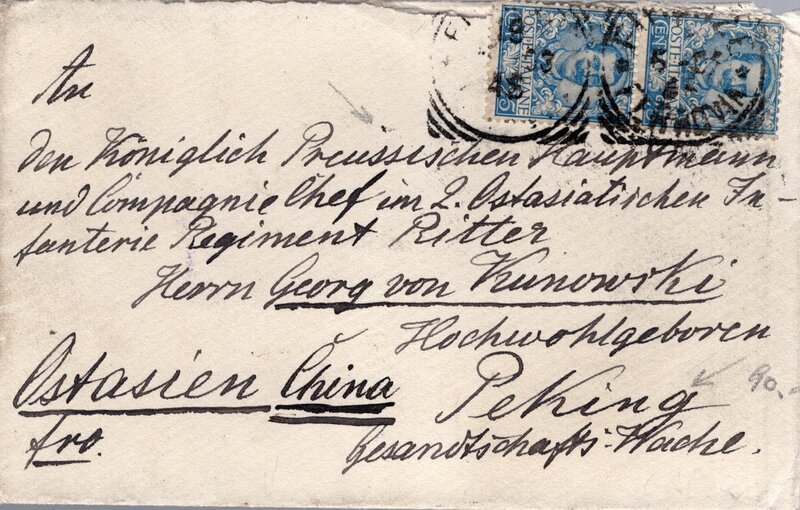 An
den Königlich Preussischen Hauptmann
und Compagnie Chef im 2. Ostasiatischen In-
fanterie Regiment Ritter
Herrn Georg von Kunowski
Hochwohlgeboren
Ostasien China Peking
fro. Gesandtschafts-Wache.
90.-
POSTE ITALIANE
CENT. 25
POSTE ITALIANE
CENT.
FERROVIA